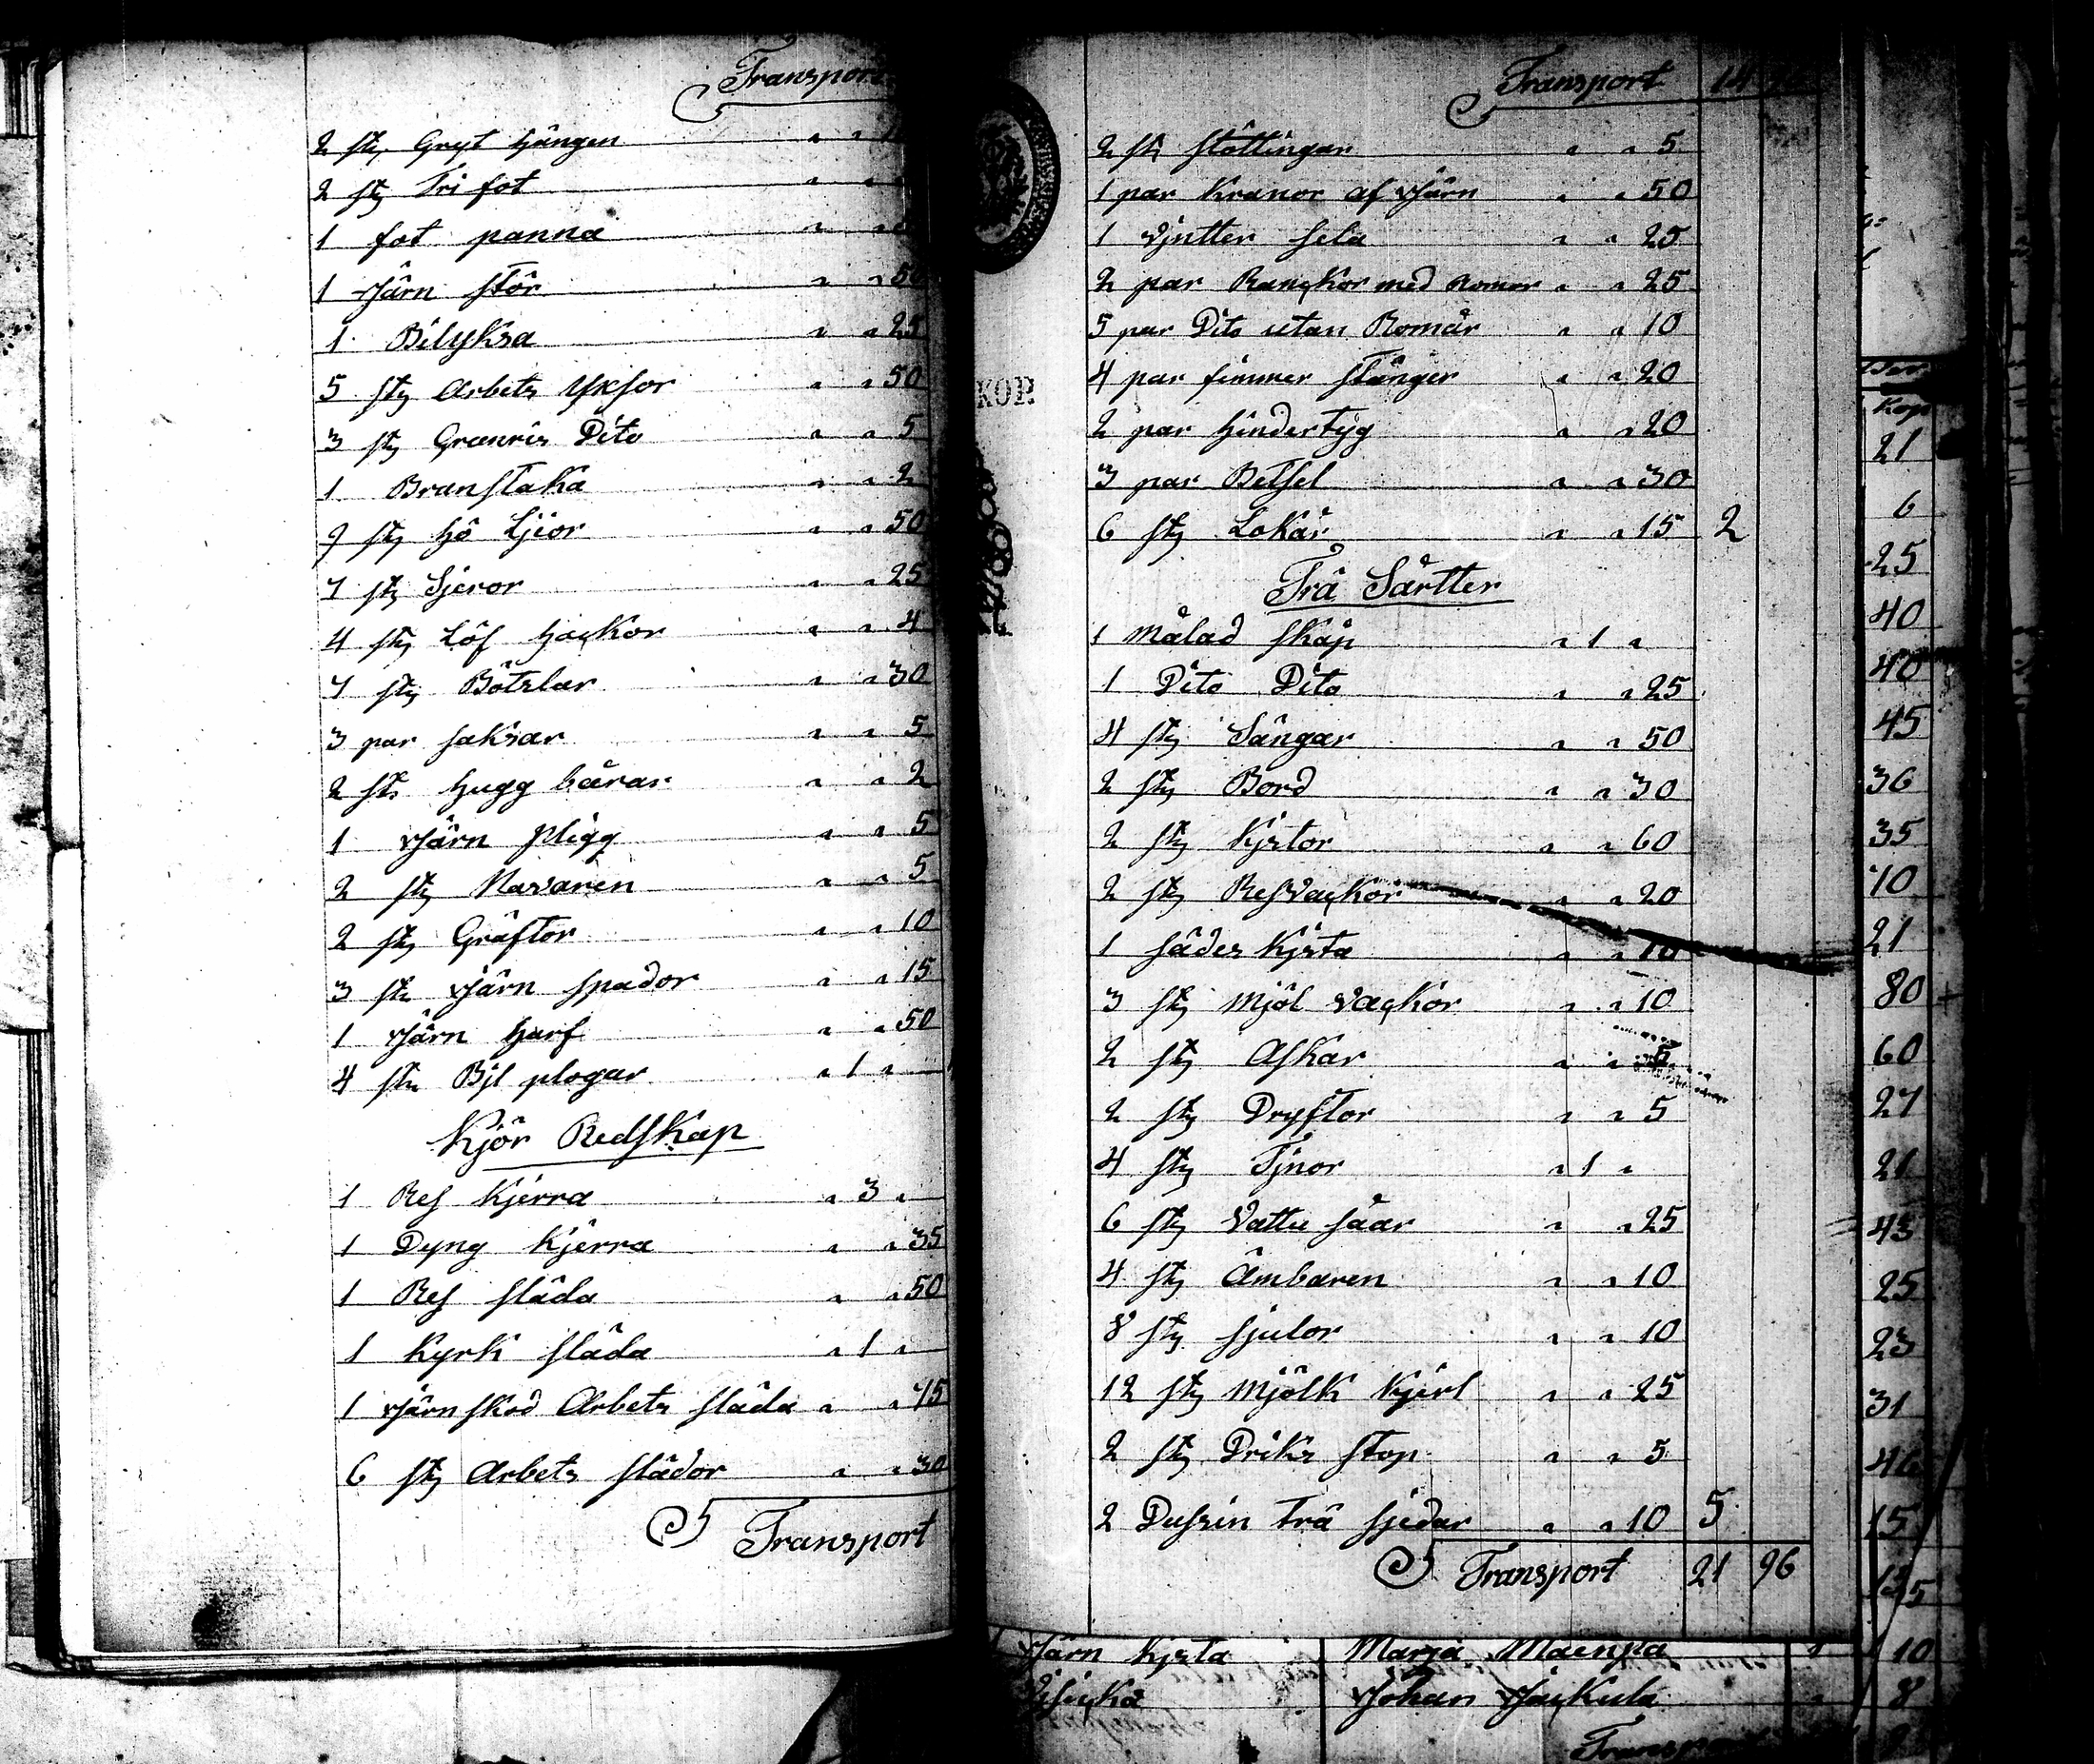 Transport
2 sty Gryt hängen " "
2 sty Tri fot " "
1 fot panna " "
1 Järn stör " " 50
1 Bilyksa " " 25
5 sty Arbets Yksor " " 50
3 sty Granris Dito " " 5
1 Branstaka " " 2
9 sty hö Ljior " " 50
7 sty Sjeror " " 25
4 sty Löf hackor " " 4
7 sty Bötslar " " 30
3 par saksar " " 5
2 sty hugg bärar " " 2
1 Järn Pligg " " 5
2 sty Navaren " " 5
2 sty Gräftor " " 10
3 sty Järn spador " " 15
1 Järn Harf " " 50
4 sty Bjl plogar " 1 "
Kjör Redskap
1 Res Kjerra " 3 "
1 Dyng Kjerra " " 35
1 Res släda " " 50
1 Kyrk släda " 1 "
1 Järnskod Arbets släda " " 75
6 sty Arbets slädor " " 30
Transport
Transport 14
2 sty stöttingar " " 5
1 par Kranor af Järn " " 50
1 sela " " 25
2 par Rankor med Romor " " 25
5 par Dito utan Romår " " 10
4 par fimmer stänger " " 20
2 par hindertyg " " 20
3 par Betsel " " 30
6 sty Lokår " " 15 2
Trä Särtter
1 Målad skåp " 1 "
1 Dito Dito " " 25
4 sty Sängar " " 50
2 sty Bord " " 30
2 sty Kjstor " " 60
2 sty Resvackor " " 20
1 sädes Kjsta " " 10
3 sty Mjöl vackor " " 10
2 sty Askar " " 5
2 sty Dryftor " " 5
4 sty Tjnor " 1 "
6 sty Vattu såar " " 25
4 sty Ämbaren " " 10
8 sty sjulor " " 10
12 sty Mjölk Kjerl " " 25
2 sty Driks stop " " 5
2 Dussin trä sjedar " " 10 5
Transport 21 96
Järn Kjsta Marja Maenpa 10
Johan Jackula 8
Kop
21
6
25
40
40
45
36
35
70
21
80
60
27
21
43
25
23
31
46
15